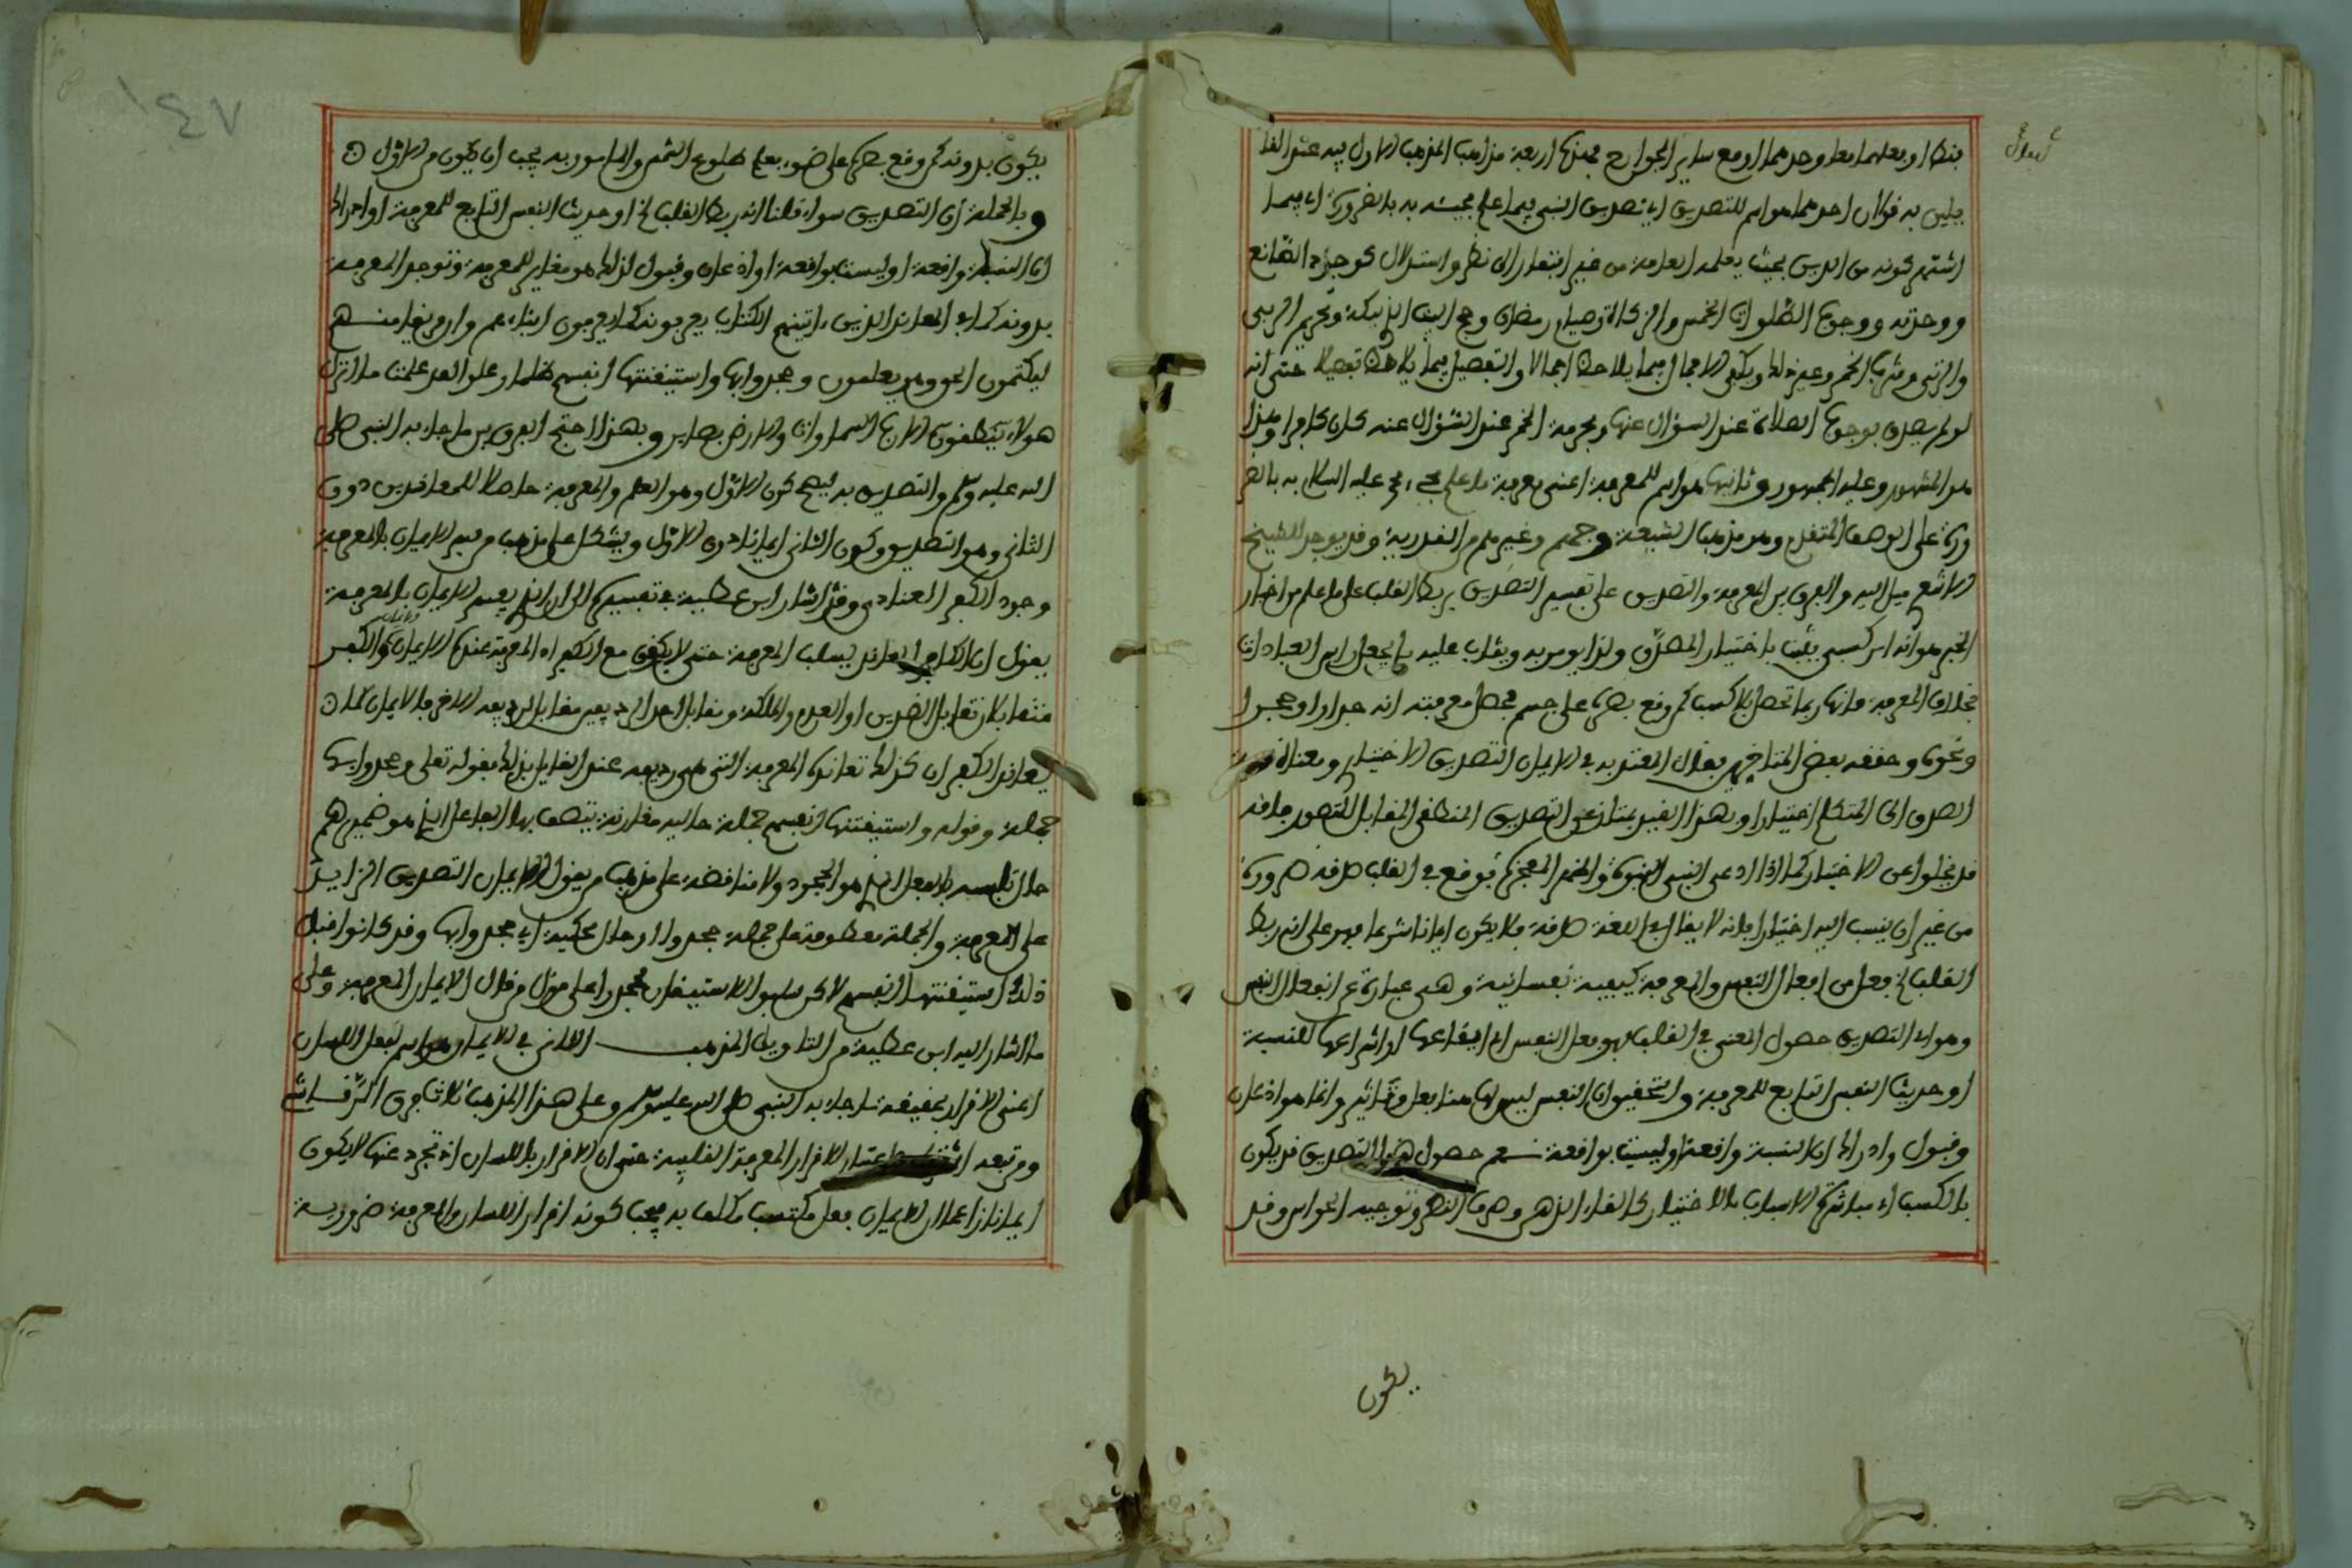 فقط او بعلهما معا وحدهما او مع ساير الجوارح فهذه اربعة مذاهب المذهب الاول فيه عند القا
يلين به قولان احدهما هو اسم للتصديق اي تصديق النبي فيما علم مجيئه به بالضرورة اي فيما
اشتهر كونه من الدين بحيث يعلمه العامة من غير افتقار الى نظر واستدلال كوجود الصانع
ووحدته ووجوب الصلوات الخمس والزكاة وصيام رمضان وحج البيت الذي بمكة وتحريم الربى
والزنى وشرب الخمر وغير ذلك ويكفي الاجمال فيما يلاحظ اجمالا والتفصيل فيما يلاحظ تفصيلا حتى انه
لو لم يصدق بوجوب الصلاة عند السؤال عنها وبحرمة الخمر عند السؤال عنه كان كافرا وهذا
هو المشهور وعليه الجمهور وثانيهما هو اسم للمعرفة اعني معرفة ما علم مجيء محمد عليه السلام به بالضر
ورة على الوصف المتقدم وهو مذهب الشيعة وجهم وغيرهم من القدرية وقد يوجد للشيخ
الاشعري ميل اليه والفرق بين المعرفة والتصديق على تفسير التصديق بربط القلب على ما علم من اخبار
المخبر هو انه امر كسبي يثبت باختيار المصدق ولذا يومر به ويثاب عليه بل يجعل راس العبادات
بخلاف المعرفة فانها ربما تحصل بلا كسب كمن وقع بصره على جسم فحصل معرفته انه جدار او حجر ا
ونحوه وحققه بعض المتاخرين بقال المعتبر به في الايمان التصديق الاختياري ومعناه نسبة
الصدق الى المتكلم اختيارا وبهذا القيد يمتاز عن التصديق المنطقي المقابل للتصور فانه
قد يخلو عن الاختيار كما اذا ادعى النبي النبوة واظهر المعجزة فوقع في القلب صدقه ضرورة
من غير ان ينسب اليه اختيارا فانه لا يقال في اللغة صدقه فلا يكون ايمانا شرعا فهو على انه ربط
القلب الخ فعل من افعال النفس والمعرفة كيفية نفسانية وهي عبارة عن انفعال النفس
وهو اي التصديق حصول المعنى في القلب فهو فعل النفس اي ايقاعها او انتزاعها للنسبة
او حديث النفس التابع للمعرفة والتحقيق ان النفس ليس لها هنا فعل وتاثير وانما هو اذعان
وقبول وادراك ان النسبة واقعة او ليست بواقعة نعم حصول هذا التصديق قد يكون
بالكسب اي مباشرة الاسباب بالاختيار كالقاء الذهن وصرف النظر وتوجيه الحواس وقد
يكون
يكون بدونه كمن وقع بصره على ضوء فعلم طلوع الشمس والمامور به يجب ان يكون من الاول
وبالجملة ان التصديق سواء قلنا انه ربط القلب الخ او حديث النفس التابع للمعرفة او ادراك
ان النسبة واقعة او ليست بواقعة او اذعان وقبول لذلك هو مغاير للمعرفة وتوجد المعرفة
بدونه كما في المعاند الذين ءاتينهم الكتاب يعرفونه كما يعرفون ابناءهم وان فريقا منهم
ليكتمون الحق وهم يعلمون وجحدوا بها واستيقنتها انفسهم ظلما وعلوا لقد علمت ما انزل
هولاء الا رب السماوات والارض بصاير وبهذا احتج الفرق بين ما جاء به النبي صلى
الله عليه وسلم والتصديق به ليصح كون الاول وهو العلم والمعرفة حاصلا للمعاندين دون
الثاني وهو التصديق وكون الثاني ايمانا دون الاول ويشكل على مذهب من فسر الايمان بالمعرفة
وجود الكفر العنادي وقد اشار ابن عطية في تفسيره الى ان الذي يفسر الايمان بالمعرفة
يقول ان الكافر المعاند يسلب المعرفة حتى لا يكون مع الكفر اذ المعرفة عنده الايمان والكفر
متقابلان تقابل الضدين او العدم والملكة ومقابل احد الرديفين مقابل لرديفه الاخر فالايمان كما
يعاند الكفر ان كذلك تعانده المعرفة التي هي رديفه عند القايل بذلك فقوله تعلى وجحدوا بها
جملة وقوله واستيقنتها انفسهم جملة حالية مقارنة يتصف بها الفاعل الذي هو ضميرهم
حال تلبسه بالفعل الذي هو الجحود ولا مناقضة على مذهب من يقول الايمان التصديق الزايد
على المعرفة والجملة معطوفة على جملة جحدوا او حال محكية اي جحدوا بها وقد كانوا قبل
ذلك استيقنتها انفسهم لاكن سلبوا الاستيقان فجحدوا على قول من قال الايمان المعرفة وعلى
ما اشار اليه ابن عطية من التاويل المذهب الثاني في الايمان هو اسم لفعل اللسان
اعني الاقرار بحقيقة ما جاء به النبي صلى الله عليه وسلم وعلى هذا المذهب ثلاث فرق الرقاشي
ومن تبعه اعتبار الاقرار المعرفة القلبية حتى ان الاقرار باللسان اذ تجرد عنها لا يكون
ايمانا زاعما ان الايمان فعل مكتسب مكلف به فيجب كونه اقرار اللسان والمعرفة ضرورية
١٤٧